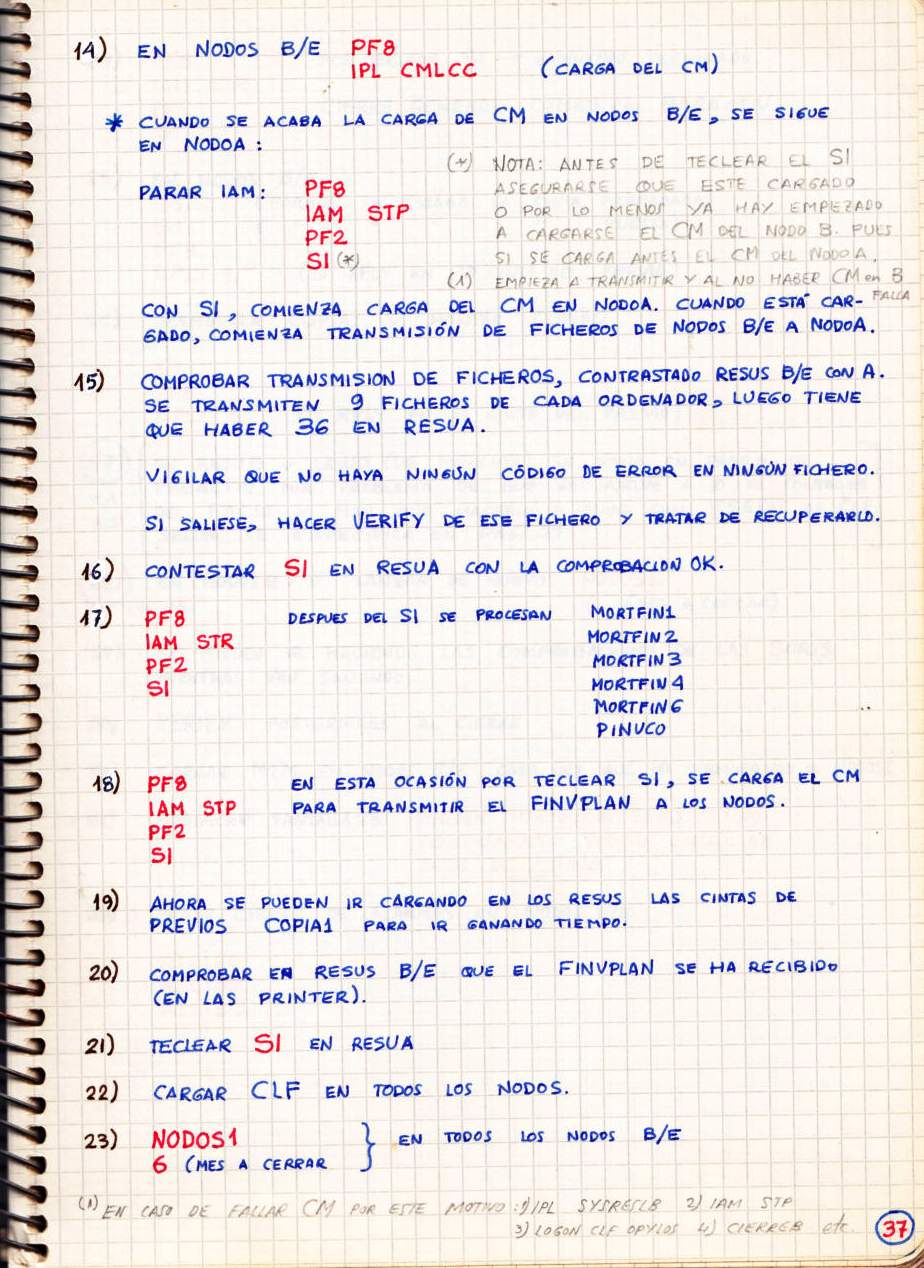 14) EN NODOS B/E PF8
IPL CMLCC (CARGA DEL CM)
* CUANDO SE ACABA LA CARGA DE CM EN NODOS B/E, SE SIGUE
EN NODOA:
PARAR IAM: PF8
IAM STP
PF2
SI (*)
(*) NOTA: ANTES DE TECLEAR EL SI
ASEGURARSE QUE ESTE CARGADO
O POR LO MENOS YA HAY EMPEZADO
A CARGARSE EL CM DEL NODO B. PUES
SI SE CARGA ANTES EL CM DEL NODO A,
(1) EMPIEZA A TRANSMITIR Y AL NO HABER CM en B
FALLA
CON SI, COMIENZA CARGA DEL CM EN NODOA. CUANDO ESTÁ CAR-
GADO, COMIENZA TRANSMISIÓN DE FICHEROS DE NODOS B/E A NODOA.
15) COMPROBAR TRANSMISION DE FICHEROS, CONTRASTADO RESUS B/E CON A.
SE TRANSMITEN 9 FICHEROS DE CADA ORDENADOR, LUEGO TIENE
QUE HABER 36 EN RESUA.
VIGILAR QUE NO HAYA NINGÚN CÓDIGO DE ERROR EN NINGÚN FICHERO.
SI SALIESE, HACER VERIFY DE ESE FICHERO Y TRATAR DE RECUPERARLO.
16) CONTESTAR SI EN RESUA CON LA COMPROBACION OK.
17) PF8 DESPUES DEL SI SE PROCESAN MORTFIN1
IAM STR MORTFIN2
PF2 MORTFIN3
SI MORTFIN4
MORTFIN6
PINUCO
18) PF8 EN ESTA OCASIÓN POR TECLEAR SI, SE CARGA EL CM
IAM STP PARA TRANSMITIR EL FINVPLAN A LOS NODOS.
PF2
SI
19) AHORA SE PUEDEN IR CARGANDO EN LOS RESUS LAS CINTAS DE
PREVIOS COPIA1 PARA IR GANANDO TIEMPO.
20) COMPROBAR EN RESUS B/E QUE EL FINVPLAN SE HA RECIBIDO
(EN LAS PRINTER).
21) TECLEAR SI EN RESUA
22) CARGAR CLF EN TODOS LOS NODOS.
23) NODOS1 } EN TODOS LOS NODOS B/E
6 (MES A CERRAR
(1) EN CASO DE FALLAR CM POR ESTE MOTIVO: 1) IPL SYSRESLB 2) IAM STP
3) LOGON CLF OPYLOS 4) CIERREB etc.
37